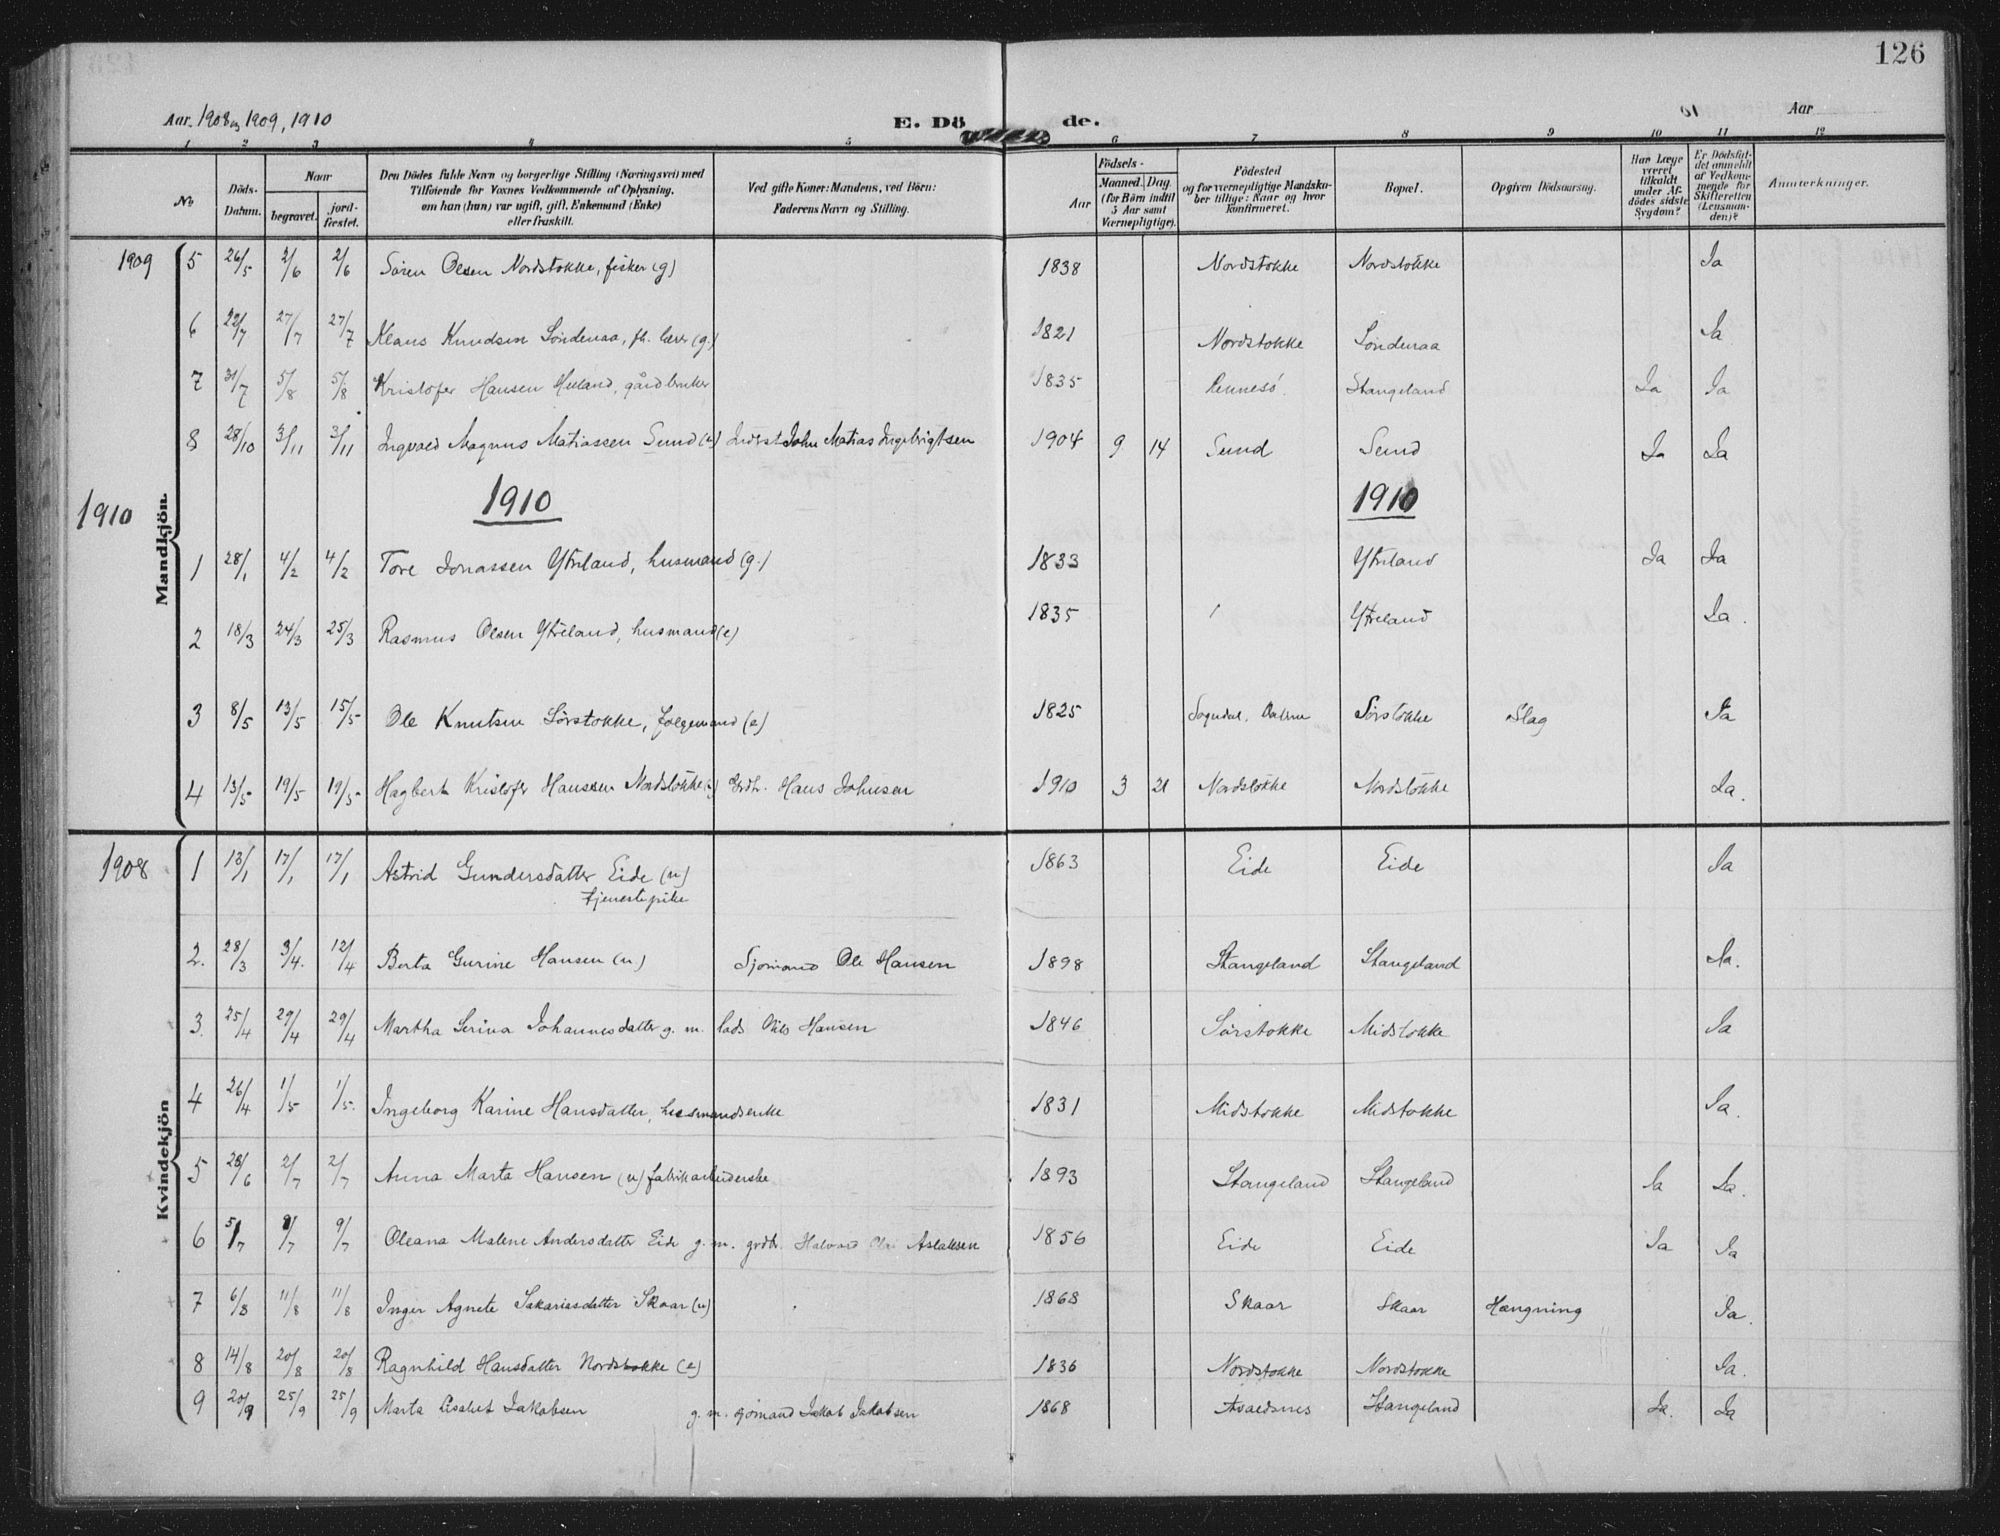 126
Aar 1908 og 1909, 1910 E. Dö de. Aar
1 2 3 4 5 6 7 8 9 10 11 12
No Döds-Datum. Naar begravet. jord-fæstet. Den Dödes fulde Navn og borgerlige Stilling (Næringsvei) med Tilföiende for Voxnes Vedkommende af Oplysning, om han (hun) var ugift, gift, Enkemand (Enke) eller fraskilt. Ved gifte Koner: Mandens, ved Börn: Faderens Navn og Stilling. Födsels- Aar Maaned. Dag. (for Börn indtil 5 Aar samt Værnepligtige). Födested og for værnepligtige Mandskaber tillige: Naar og hvor konfirmeret. Bopæl. Opgiven Dödsaarsag. Har Læge været tilkaldt under Afdödes sidste Sygdom? Er Dödsfaldet anmeldt af Vedkommende for Skifteretten (Lensmanden)? Anmærkninger.
Mandkjön.
1909 5 26/5 2/6 2/6 Sören Olsen Nordstokke, fisker (g) 1838 Nordstokke Nordstokke Ja
6 22/7 27/7 27/7 Klaus Knudsen Söndenaa, fh. lærer (g.) 1821 Nordstokke Söndenaa Ja
7 31/7 5/8 5/8 Kristofer Hansen Meland, gårdbruker 1835 Rennesö Stangeland Ja Ja
8 28/10 3/11 3/11 Ingvald Magnus Matiassen Sund (u) Inderst John Matias Ingebrigtsen 1904 9 14 Sund Sund Ja Ja
1910 1910 1910
1 28/1 4/2 4/2 Tore Jonassen Ytreland, husmand (g.) 1833 Ytreland Ja Ja
2 18/3 24/3 25/3 Rasmus Olsen Ytreland, husmand (e) 1835 Ytreland Ja.
3 8/5 13/5 15/5 Ole Knutsen Sörstokke, folgemand (e) 1825 Sogndal, Dalene Sörstokke Slag Ja
4 13/5 19/5 19/5 Hagbert Kristofer Hanssen Nordstokke Grdbr. Hans Johnsen 1910 3 21 Nordstokke Nordstokke Ja.
Kvindekjön
1908 1 13/1 17/1 17/1 Astrid Gundersdatter Eide (u) 1863 Eide Eide Ja
tjenestepike
2. 28/3 3/4. 12/4 Berta Gurine Hansen (u) Sjömand Ole Hansen 1898 Stangeland Stangeland Ja.
3 25/4 29/4 29/4 Martha Serina Johannesdatter g. m. lods Hansen 1846 Sörstokke Midstokke Ja
4 26/4 1/5 1/5. Ingeborg Karine Hansdatter, husmandsenke 1831 Midstokke Midstokke Ja.
5 28/6 2/7 2/7 Anna Marta Hansen (u) fabrikarbeiderske 1893 Stangeland Stangeland Ja Ja.
6 5/7 9/7 9/7 Oleana Malene Andersdatter Eide g. m. grdbr. Halvard Aslaksen 1856 Eide Eide Ja Ja
7 6/8 11/8 11/8 Inger Agnete Sakariasdatter Skaar (u) 1868 Skaar Skaar Hængning Ja.
8 14/8 20/8 20/8 Ragnhild Hansdatter Nordstokke (e) 1836 Nordstokke Nordstokke Ja.
9 20/9 25/9 25/9 Marta Lisabet Jakobsen g. m. sjömand Jakob Jakobsen 1868 Avaldsnes Stangeland Ja. Ja